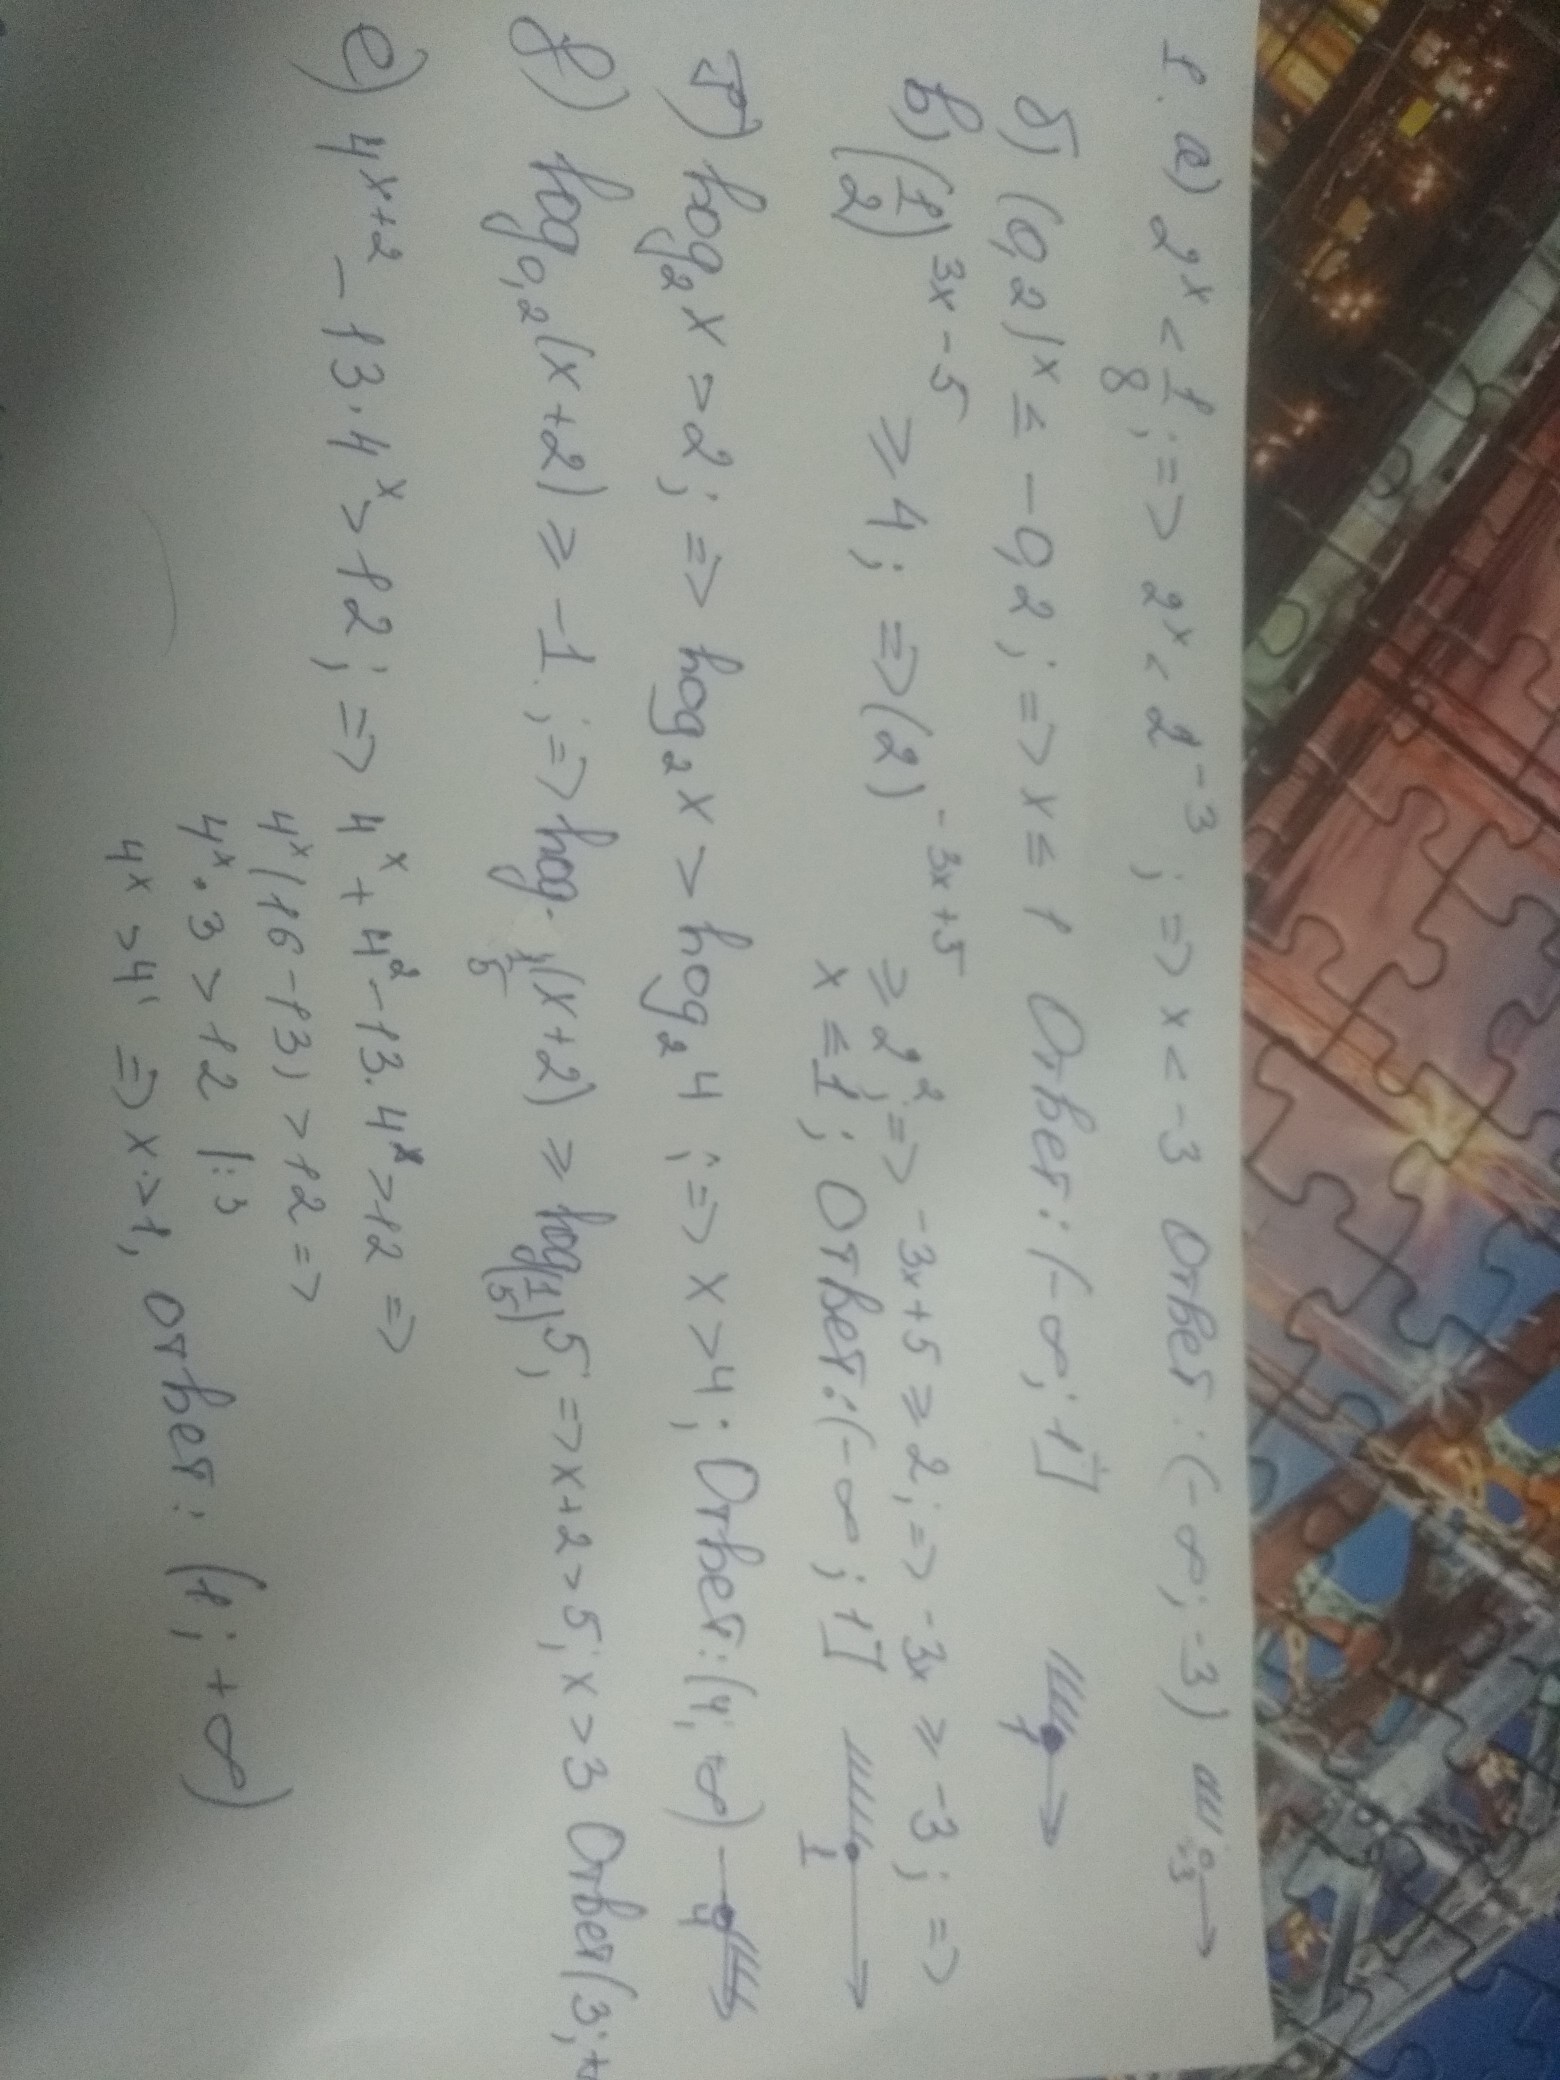 1. а) 2^x < 1/8; => 2^x < 2^-3; => x < -3 Ответ: (-∞; -3) -3
б) (0,2)^x ≤ -0,2; => x ≤ 1 Ответ: (-∞; 1] 1
в) (1/2)^3x-5 ≥ 4; => (2)^-3x+5 ≥ 2^2; => -3x+5 ≥ 2; => -3x ≥ -3; =>
x ≤ 1; Ответ: (-∞; 1] 1
г) log_2 x > 2; => log_2 x > log_2 4; => x > 4; Ответ: (4; +∞) 4
д) log_0,2 (x+2) ≥ -1; => log_1/5 (x+2) ≥ log_(1/5) 5; => x+2 > 5; x > 3 Ответ (3; +
е) 4^x+2 - 13·4^x > 12; => 4^x + 4^2 - 13·4^x > 12 =>
4^x (16-13) > 12 =>
4^x · 3 > 12 |:3
4^x > 4^1 => x > 1, ответ: (1; +∞)